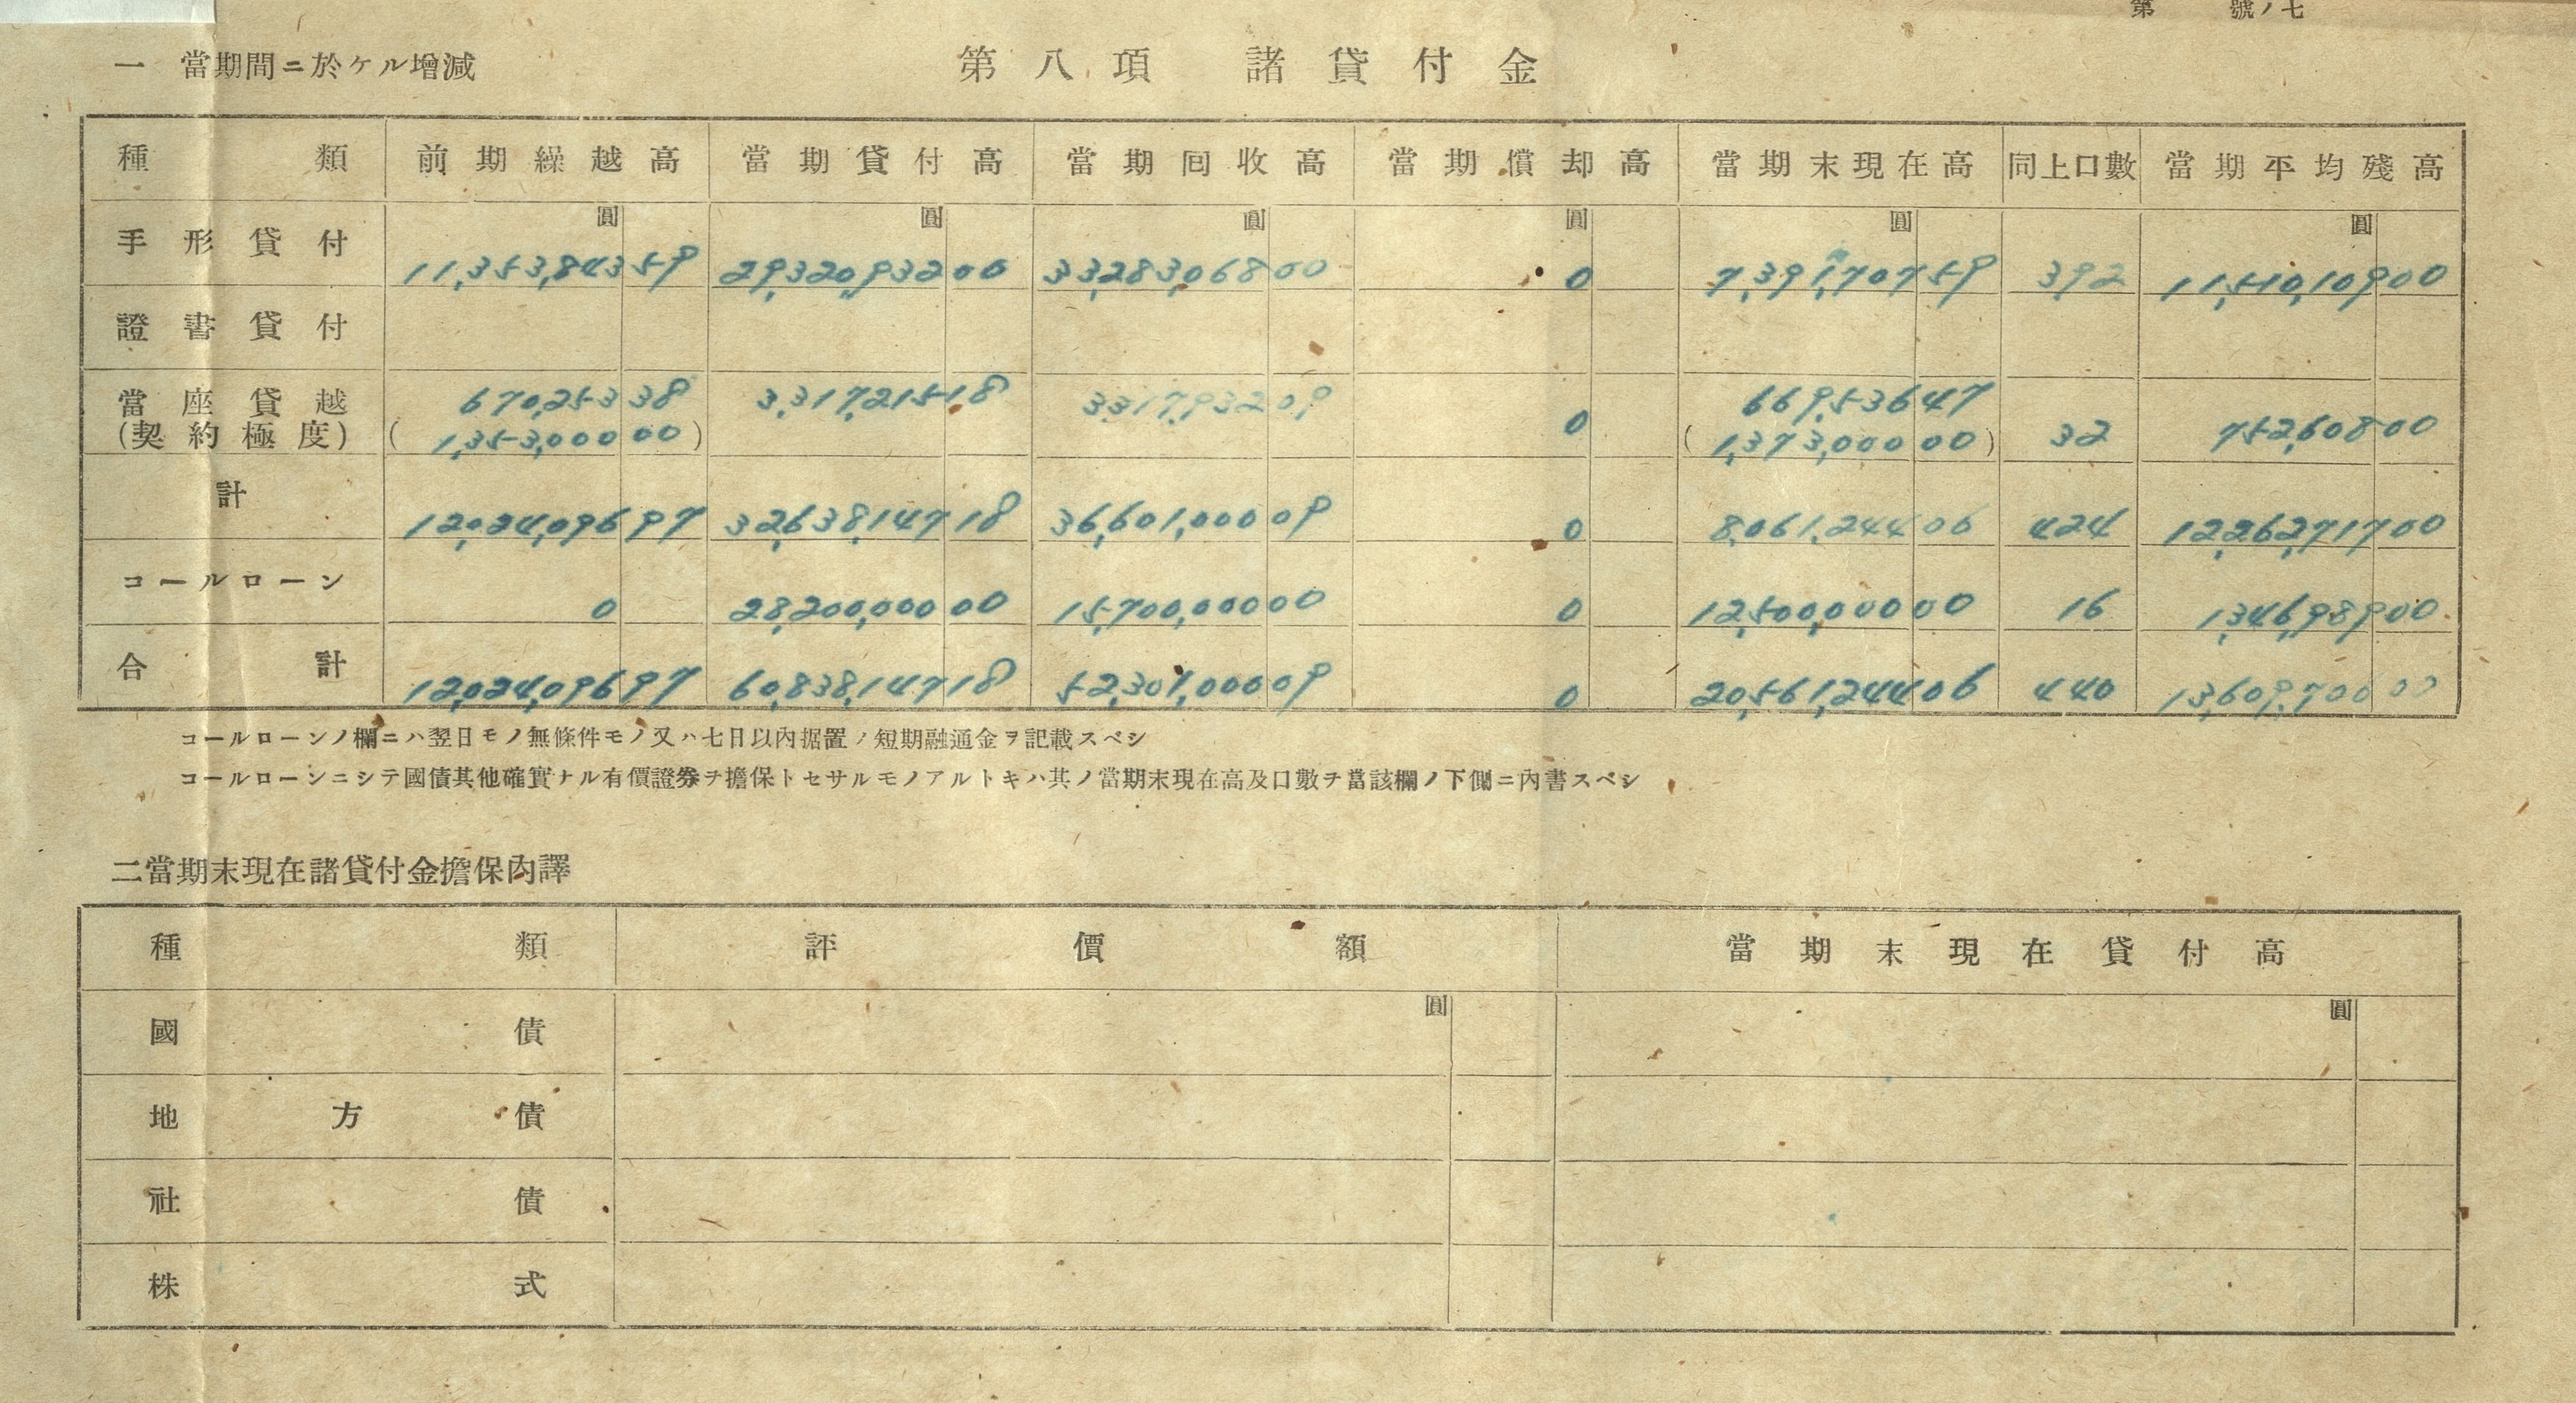 第 號ノ七
第八項 諸貸付金
一 當期間ニ於ケル增減
種類 前期繰越高 當期貸付高 當期回收高 當期償却高 當期末現在高 同上口數 當期平均殘高
圓 圓 圓 圓 圓 圓
手形貸付 11,353,843 59 29,320,932 00 33,283,068 00 0 7,391,707 59 392 11,510,109 00
證書貸付
當座貸越 670,253 38 3,317,215 18 3,317,932 09 0 669,536 47 32 752,608 00
(契約極度) (1,353,000 00) (1,373,000 00)
計 12,024,096 97 32,638,147 18 36,601,000 09 0 8,061,244 06 424 12,262,717 00
コールローン 0 28,200,000 00 15,700,000 00 0 12,500,000 00 16 1,346,989 00
合計 12,024,096 97 60,838,147 18 52,301,000 09 0 20,561,244 06 440 13,609,706 00
コールローンノ欄ニハ翌日モノ無條件モノ又ハ七日以內据置ノ短期融通金ヲ記載スベシ
コールローンニシテ國債其他確實ナル有價證券ヲ擔保トセサルモノアルトキハ其ノ當期末現在高及口數ヲ當該欄ノ下側ニ內書スベシ
二當期末現在諸貸付金擔保內譯
種類 評價額 當期末現在貸付高
圓 圓
國債
地方債
社債
株式